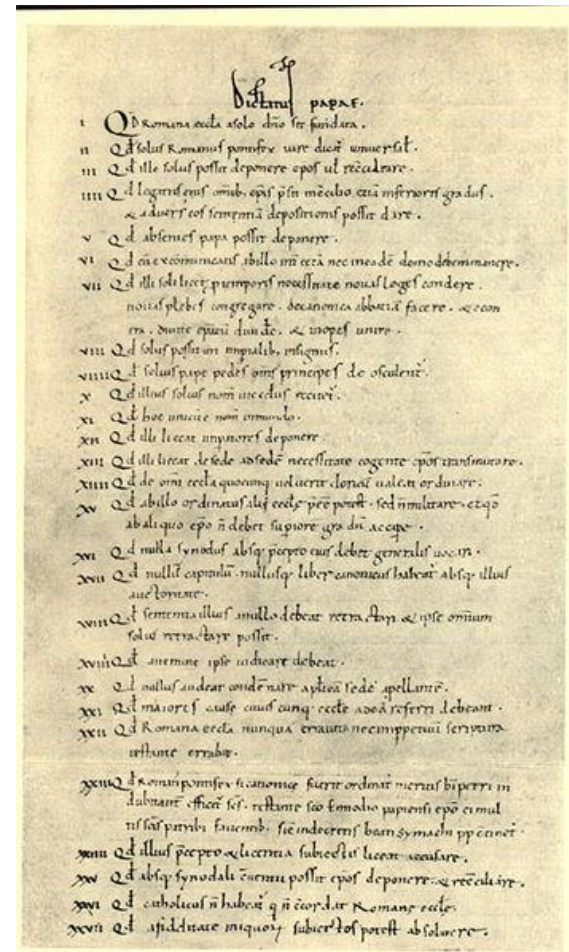 Dictatus papae.
i Qd Romana eccla a solo dno sit fundata.
ii Qd solus Romanus pontifex iure dicat universal.
iii Qd ille solus possit deponere epos ul reconciliare.
iiii Qd legatus eius omib. epis psit in concilio etia inferioris gradus.
& adversus eos sententia depositionis possit dare.
v Qd absentes papa possit deponere.
vi Qd cu excommunicatis ab illo int cetera nec in eade domo debem manere.
vii Qd illi soli licet p temporis necessitate novas leges condere.
novas plebes congregare. de canonica abbatia facere. & econ
tra. divite epatu dividere. & inopes unire.
viii Qd solus possit uti imperialib. insigniis.
viiii Qd solius pape pedes oms principes deosculent.
x Qd illius solius nom in ecclis recitet.
xi Qd hoc unicu e nom in mundo.
xii Qd illi liceat impatores deponere.
xiii Qd illi liceat de sede ad sede necessitate cogente epos transmutare.
xiiii Qd de omi eccla quocunq voluerit clericu valeat ordinare.
xv Qd ab illo ordinatus alii eccle pee potest. sed n militare. et qd
ab aliquo epo n debet supiore gradu accipe.
xvi Qd nulla synodus absq pcepto eius debet generalis vocari.
xvii Qd nullu capitulu. nullusq liber canonicus habeat absq illius
auctoritate.
xviii Qd sententia illius a nullo debeat retractari & ipse omnium
solus retractare possit.
xviiii Qd a nemine ipse iudicare debeat.
xx Qd nullus audeat condenare aplica sede apellante.
xxi Qd maiores cause cuiuscunq eccle ad ea referri debeant.
xxii Qd Romana eccla nunqua erravit nec imppetuu scriptura
testante errabit.
xxiii Qd Roman pontifex si canonice fuerit ordinat meritis bi petri in
dubitant efficit scs. testante sco Ennodio papiensi epo ei mul
tis scis patribus faventib. sic in decretis beati Symachi pp continet.
xxiiii Qd illius pcepto & licentia subiectis liceat accusare.
xxv Qd absq synodali conventu possit epos deponere. & reconciliare.
xxvi Qd catholicus n habeat q n concordat Romane eccle.
xxvii Qd a fidelitate iniquor subiectos potest absolvere.